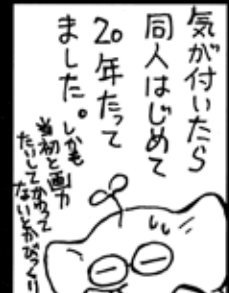 気が付いたら
同人はじめて
20年たって
ました。
しかも
当初と画力
たいしてかわって
ないとかびっくり